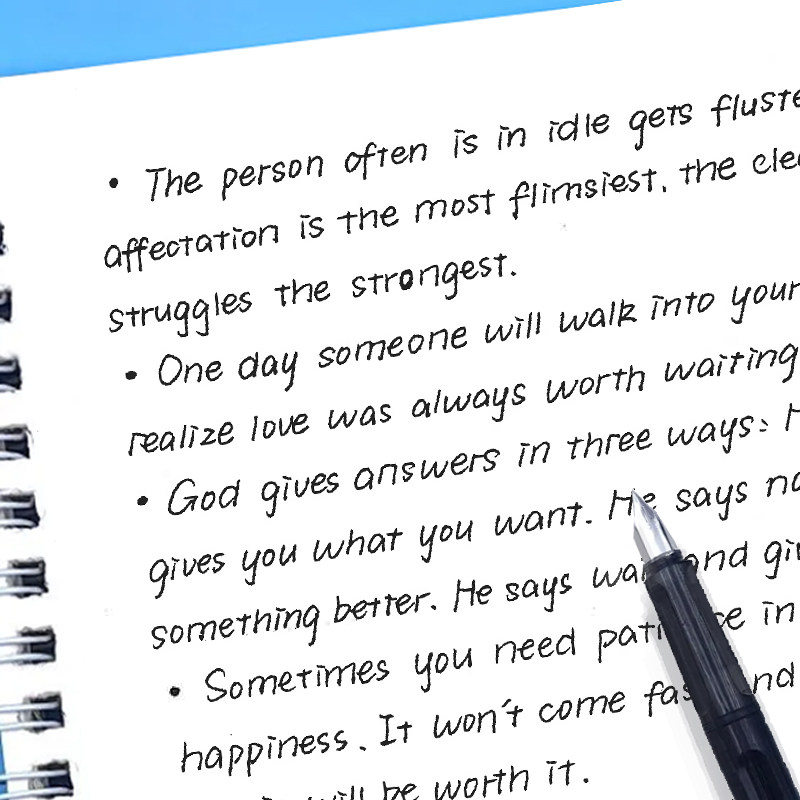 • The person often is in idle gets
affectation is the most flimsiest, the
struggles the strongest.
• One day someone will walk into your
realize love was always worth waiting
• God gives answers in three ways:
gives you what you want. He says
something better. He says and
• Sometimes you need in
happiness. It won't come
will be worth it.